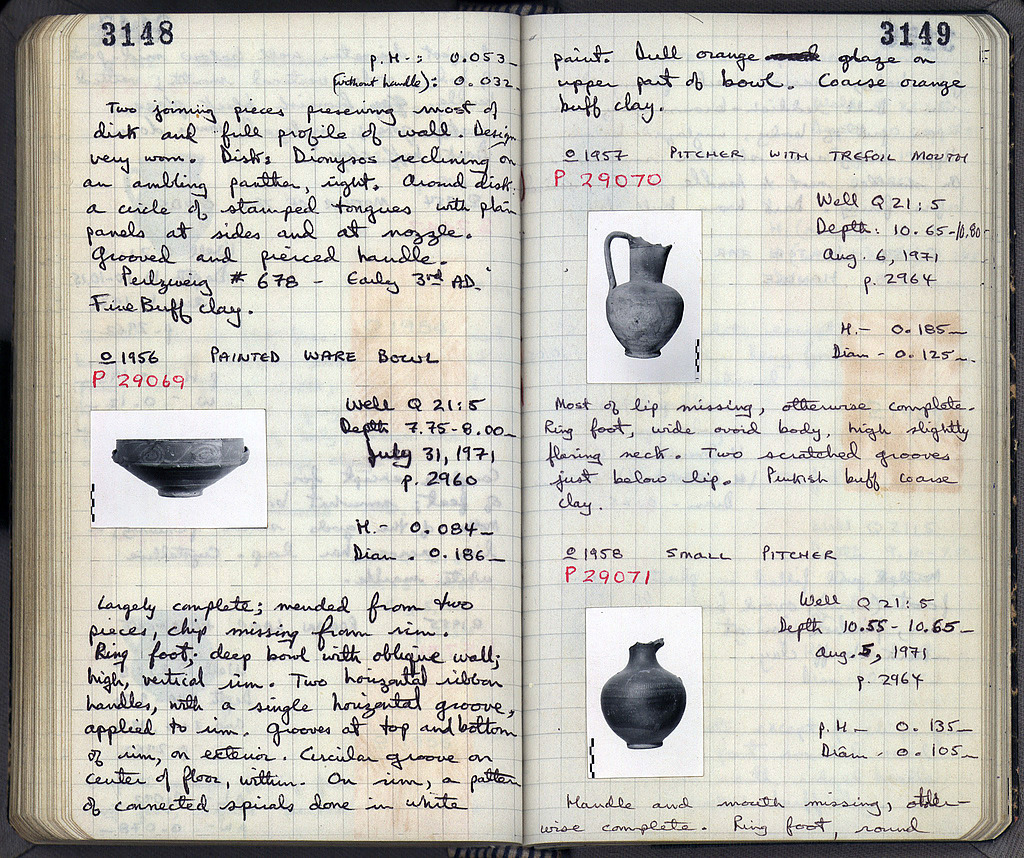 3148
p.H.-: 0.053
(without handle): 0.032
Two joining pieces preserving most of
disk and full profile of wall. Design
very worn. Disk: Dionysos reclining on
an ambling panther, right. Around disk:
a circle of stamped tongues with plain
panels at sides and at nozzle.
Grooved and pierced handle.
Perlzweig # 678 - Early 3rd AD.
Fine Buff clay.
O 1956 PAINTED WARE BOWL
P 29069
Well Q 21:5
Depth 7.75-8.00
July 31, 1971
p. 2960
H.- 0.084
Diam. 0.186
Largely complete; mended from two
pieces, chip missing from rim.
Ring foot; deep bowl with oblique wall;
high, vertical rim. Two horizontal ribbon
handles, with a single horizontal groove,
applied to rim. Grooves at top and bottom
of rim, on exterior. Circular groove on
center of floor, within. On rim, a pattern
of connected spirals done in white
3149
paint. Dull orange glaze on
upper part of bowl. Coarse orange
buff clay.
O 1957 PITCHER WITH TREFOIL MOUTH
P 29070
Well Q 21:5
Depth: 10.65-10.80
Aug. 6, 1971
p. 2964
H.- 0.185
Diam - 0.125
Most of lip missing, otherwise complete.
Ring foot, wide ovoid body, high slightly
flaring neck. Two scratched grooves
just below lip. Pinkish buff coarse
clay.
O 1958 SMALL PITCHER
P 29071
Well Q 21:5
Depth 10.55-10.65
Aug. 5, 1971
p. 2964
p.H.- 0.135
Diam - 0.105
Handle and mouth missing, other-
wise complete. Ring foot, round